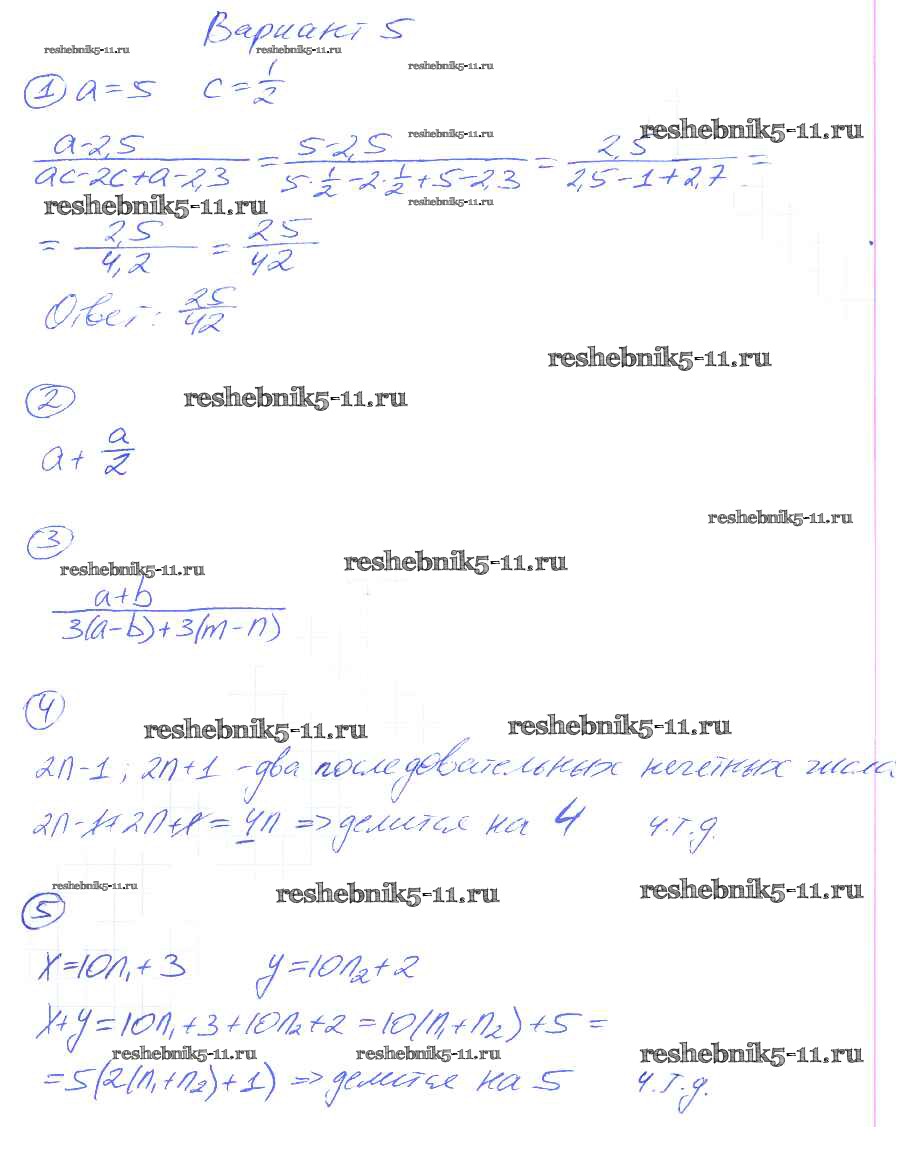 Вариант 5
reshebnik5-11.ru reshebnik5-11.ru reshebnik5-11.ru
① a=5 c=1/2
reshebnik5-11.ru reshebnik5-11.ru
(a-2,5)/(ac-2c+a-2,3) = (5-2,5)/(5·1/2-2·1/2+5-2,3) = 2,5/(2,5-1+2,7) =
reshebnik5-11.ru reshebnik5-11.ru
= 2,5/4,2 = 25/42
Ответ: 25/42
reshebnik5-11.ru
② reshebnik5-11.ru
a + a/2
reshebnik5-11.ru
③
reshebnik5-11.ru reshebnik5-11.ru
(a+b)/(3(a-b)+3(m-n))
④
reshebnik5-11.ru reshebnik5-11.ru
2n-1; 2n+1 - два последовательных нечётных числа
2n-1+2n+1 = 4n => делится на 4 ч.т.д.
reshebnik5-11.ru reshebnik5-11.ru reshebnik5-11.ru
⑤
x=10n₁+3 y=10n₂+2
x+y=10n₁+3+10n₂+2=10(n₁+n₂)+5=
reshebnik5-11.ru reshebnik5-11.ru reshebnik5-11.ru
=5(2(n₁+n₂)+1) => делится на 5 ч.т.д.